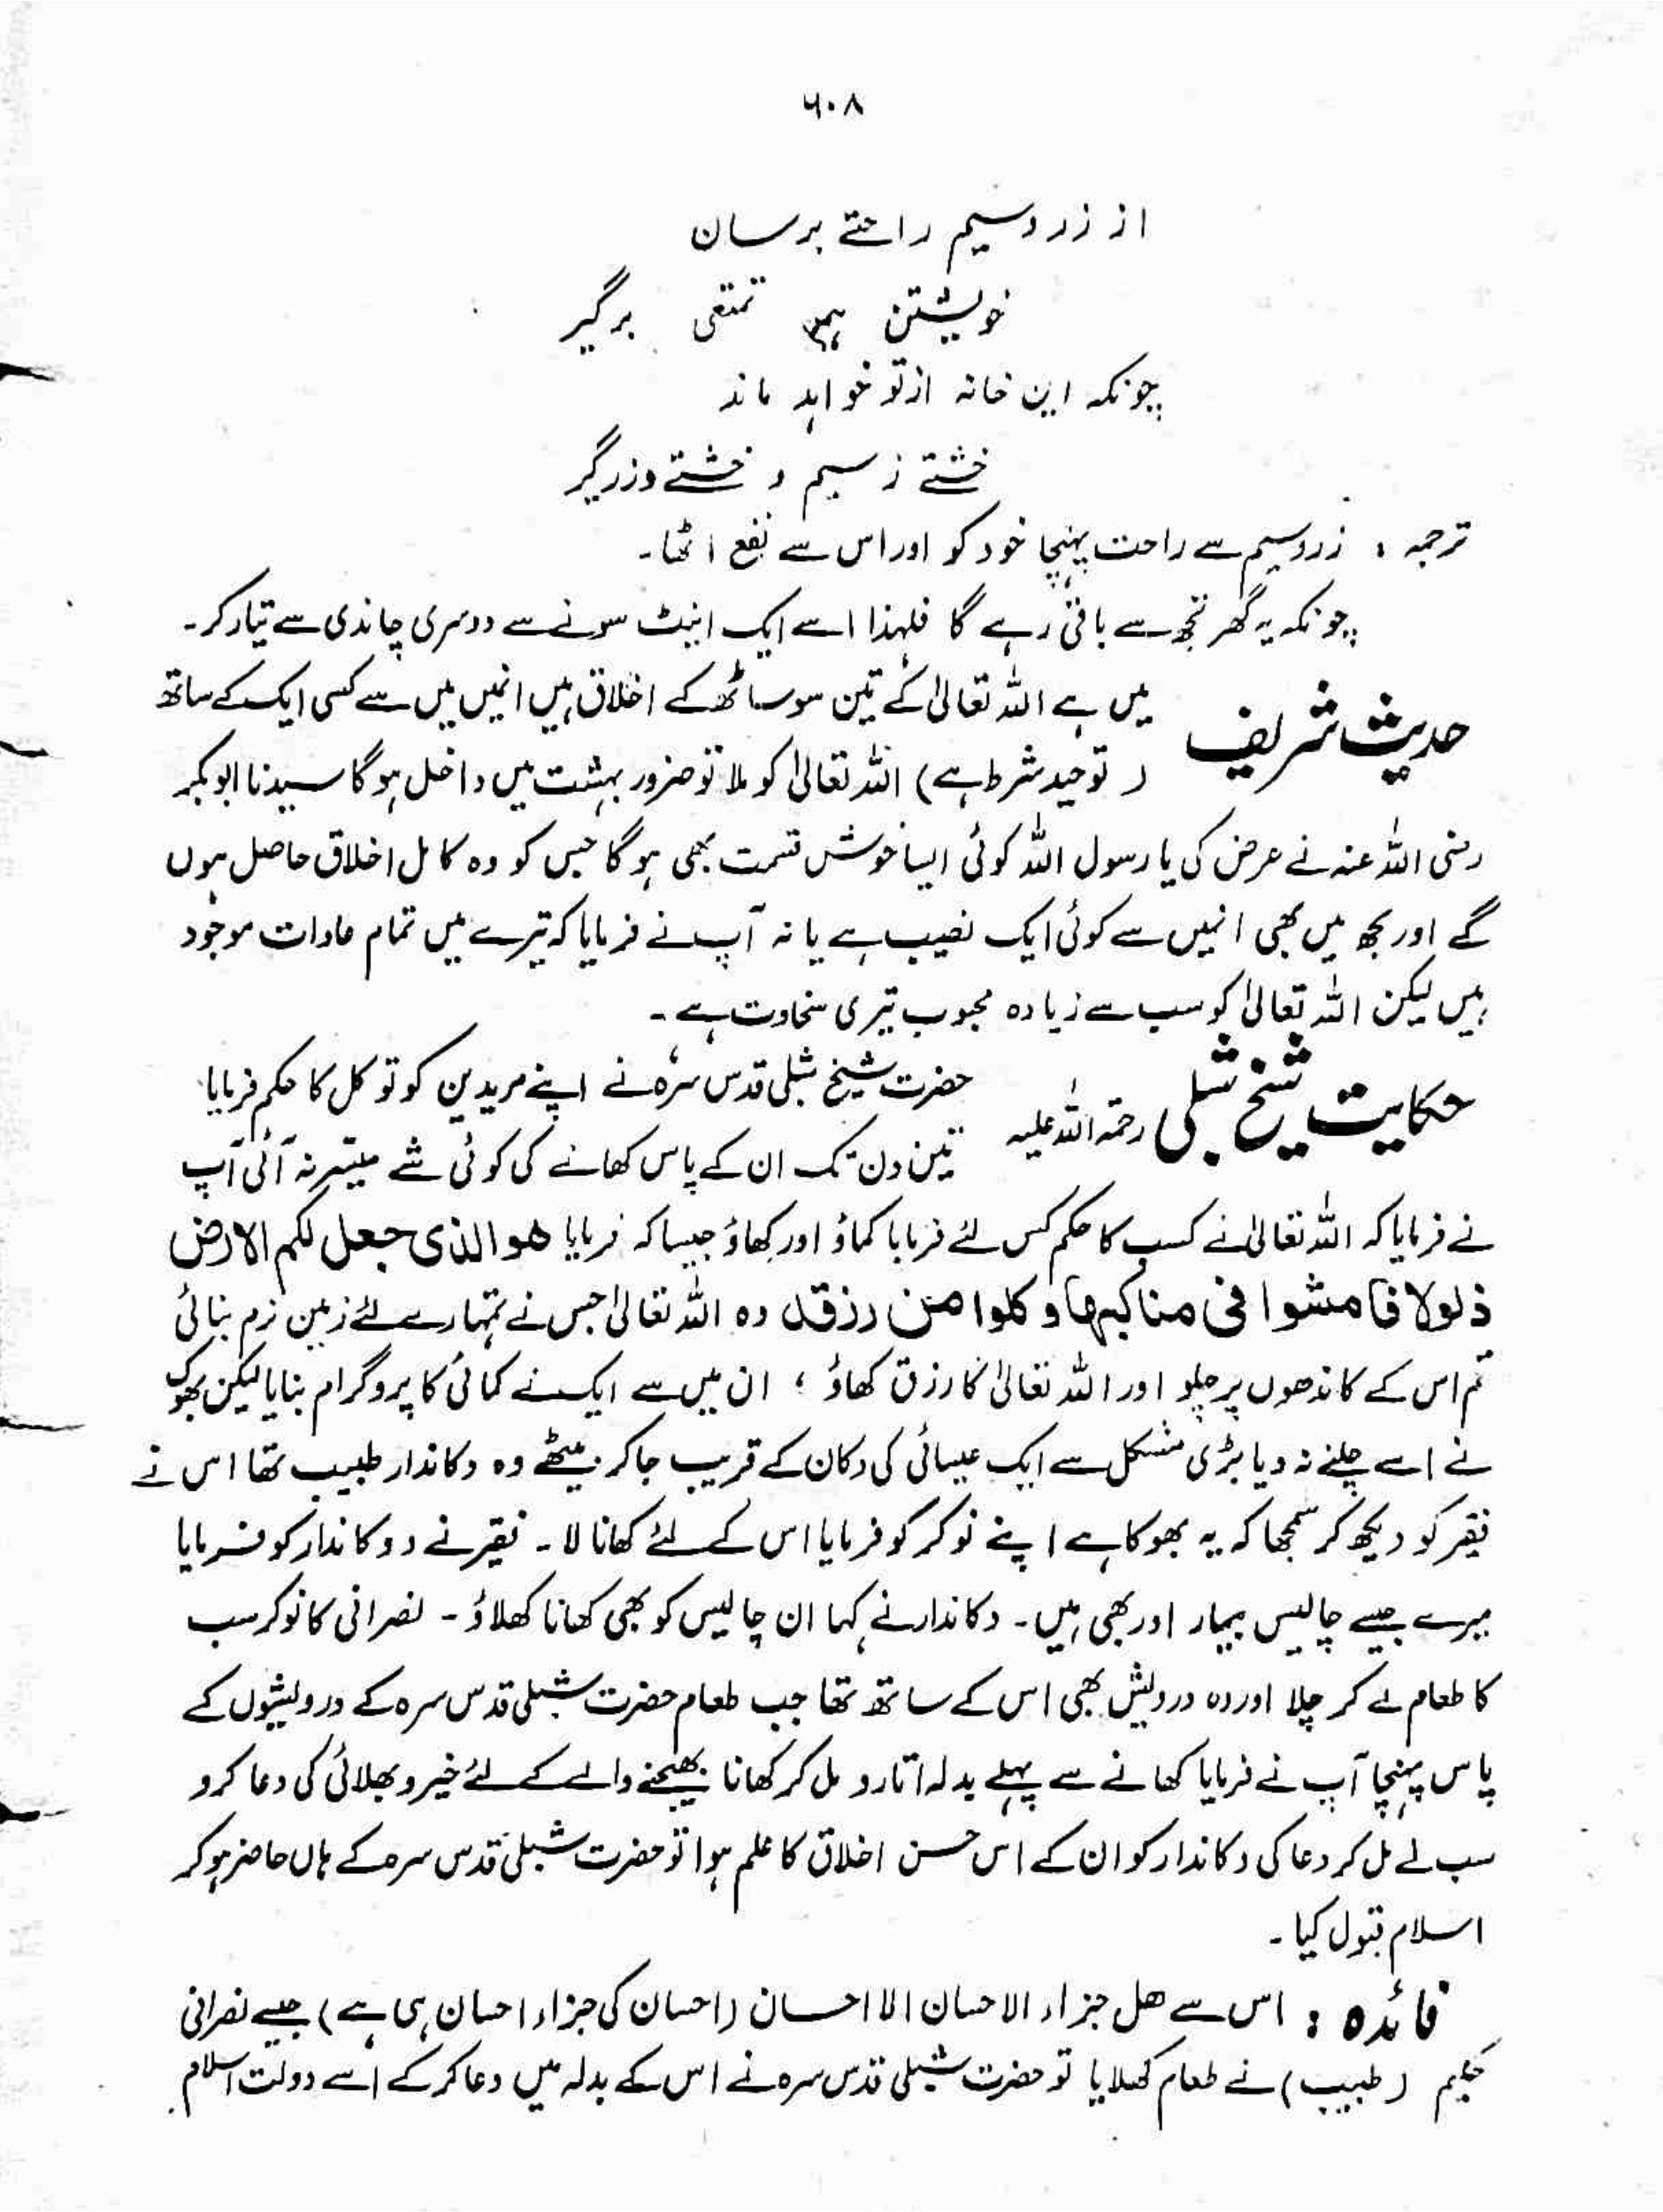 ۶۰۸
از زر و سیم راحتے برسان
خویشتن ہم تمتعی برگیر
چونکہ این خانہ از تو خواہد ماند
خشتے ز سیم و خشتے وزر گیر
ترجمہ : زر و سیم سے راحت پہنچا خود کو اور اس سے نفع اٹھا۔
چونکہ یہ گھر تجھ سے باقی رہے گا فلہذا اسے ایک اینٹ سونے سے دوسری چاندی سے تیار کر۔
حدیث شریف میں ہے اللہ تعالیٰ کے تین سو ساٹھ کے اخلاق ہیں انہیں میں سے کسی ایک کے ساتھ
( توحید شرط ہے) اللہ تعالیٰ کو ملا تو ضرور بہشت میں داخل ہوگا سیدنا ابوبکر
رضی اللہ عنہ نے عرض کی یا رسول اللہ کوئی ایسا خوش قسمت بھی ہوگا جس کو وہ کامل اخلاق حاصل ہوں
گے اور مجھ میں بھی انہیں سے کوئی ایک نصیب ہے یا نہ آپ نے فرمایا کہ تیرے میں تمام عادات موجود
ہیں لیکن اللہ تعالیٰ کو سب سے زیادہ محبوب تیری سخاوت ہے۔
حکایت شیخ شبلی رحمۃ اللہ علیہ حضرت شیخ شبلی قدس سرہ نے اپنے مریدین کو توکل کا حکم فرمایا
تین دن تک ان کے پاس کھانے کی کوئی شے میسر نہ آئی آپ
نے فرمایا کہ اللہ تعالیٰ نے کسب کا حکم کس لئے فرمایا کماؤ اور کھاؤ جیسا کہ فرمایا ھو الذی جعل لکم الارض
ذلولا فامشوا فی مناکبہا و کلوا من رزقہ وہ اللہ تعالیٰ جس نے تمہارے لئے زمین نرم بنائی
تم اس کے کاندھوں پر چلو اور اللہ تعالیٰ کا رزق کھاؤ ؛ ان میں سے ایک نے کمائی کا پروگرام بنایا لیکن بھوک
نے اسے چلنے نہ دیا بڑی مشکل سے ایک عیسائی کی دکان کے قریب جا کر بیٹھے وہ دکاندار طبیب تھا اس نے
فقیر کو دیکھ کر سمجھا کہ یہ بھوکا ہے اپنے نوکر کو فرمایا اس کے لئے کھانا لا۔ فقیر نے دوکاندار کو فرمایا
میرے جیسے چالیس بیمار اور بھی ہیں۔ دکاندار نے کہا ان چالیس کو بھی کھانا کھلاؤ۔ نصرانی کا نوکر سب
کا طعام لے کر چلا اور وہ درویش بھی اس کے ساتھ تھا جب طعام حضرت شبلی قدس سرہ کے درویشوں کے
پاس پہنچا آپ نے فرمایا کھانے سے پہلے بدلہ اتارو مل کر کھانا بھیجنے والے کے لئے خیر و بھلائی کی دعا کرو
سب لے مل کر دعا کی دکاندار کو ان کے اس حسن اخلاق کا علم ہوا تو حضرت شبلی قدس سرہ کے ہاں حاضر ہو کر
اسلام قبول کیا۔
فائدہ : اس سے ھل جزاء الاحسان الا احسان (احسان کی جزاء احسان ہی ہے) جیسے نصرانی
حکیم (طبیب) نے طعام کھلایا تو حضرت شبلی قدس سرہ نے اس کے بدلہ میں دعا کر کے اسے دولت اسلام